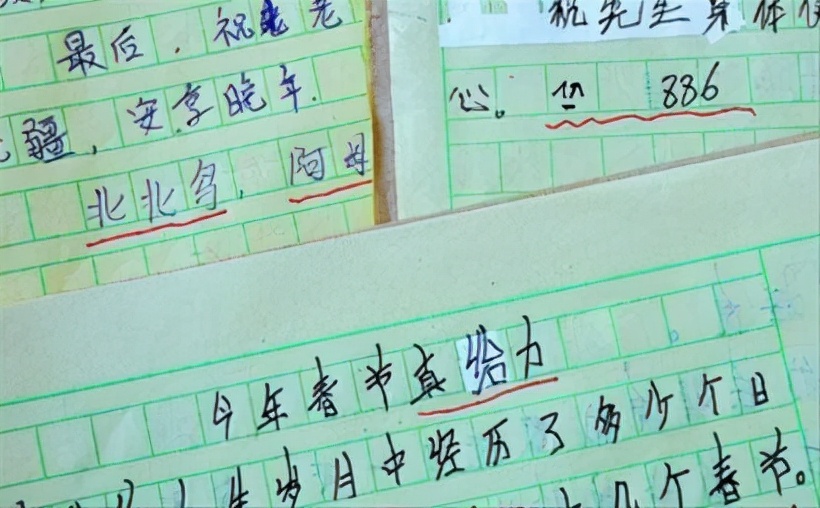 最后,祝老老
疆,安享晚年.
北北鸟,阿母
祝先生身体
心。 886
今年春节真给力
岁月中经历了多少个日
几个春节。